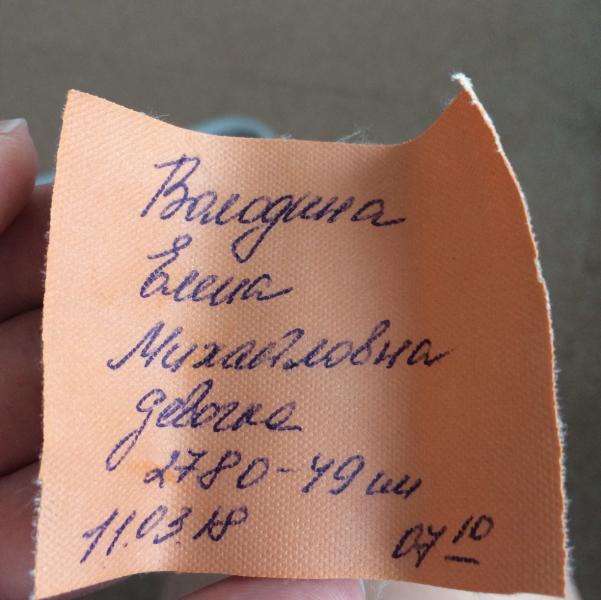 Володина
Елена
Михайловна
девочка
2780-49 см
11.03.18 07 10